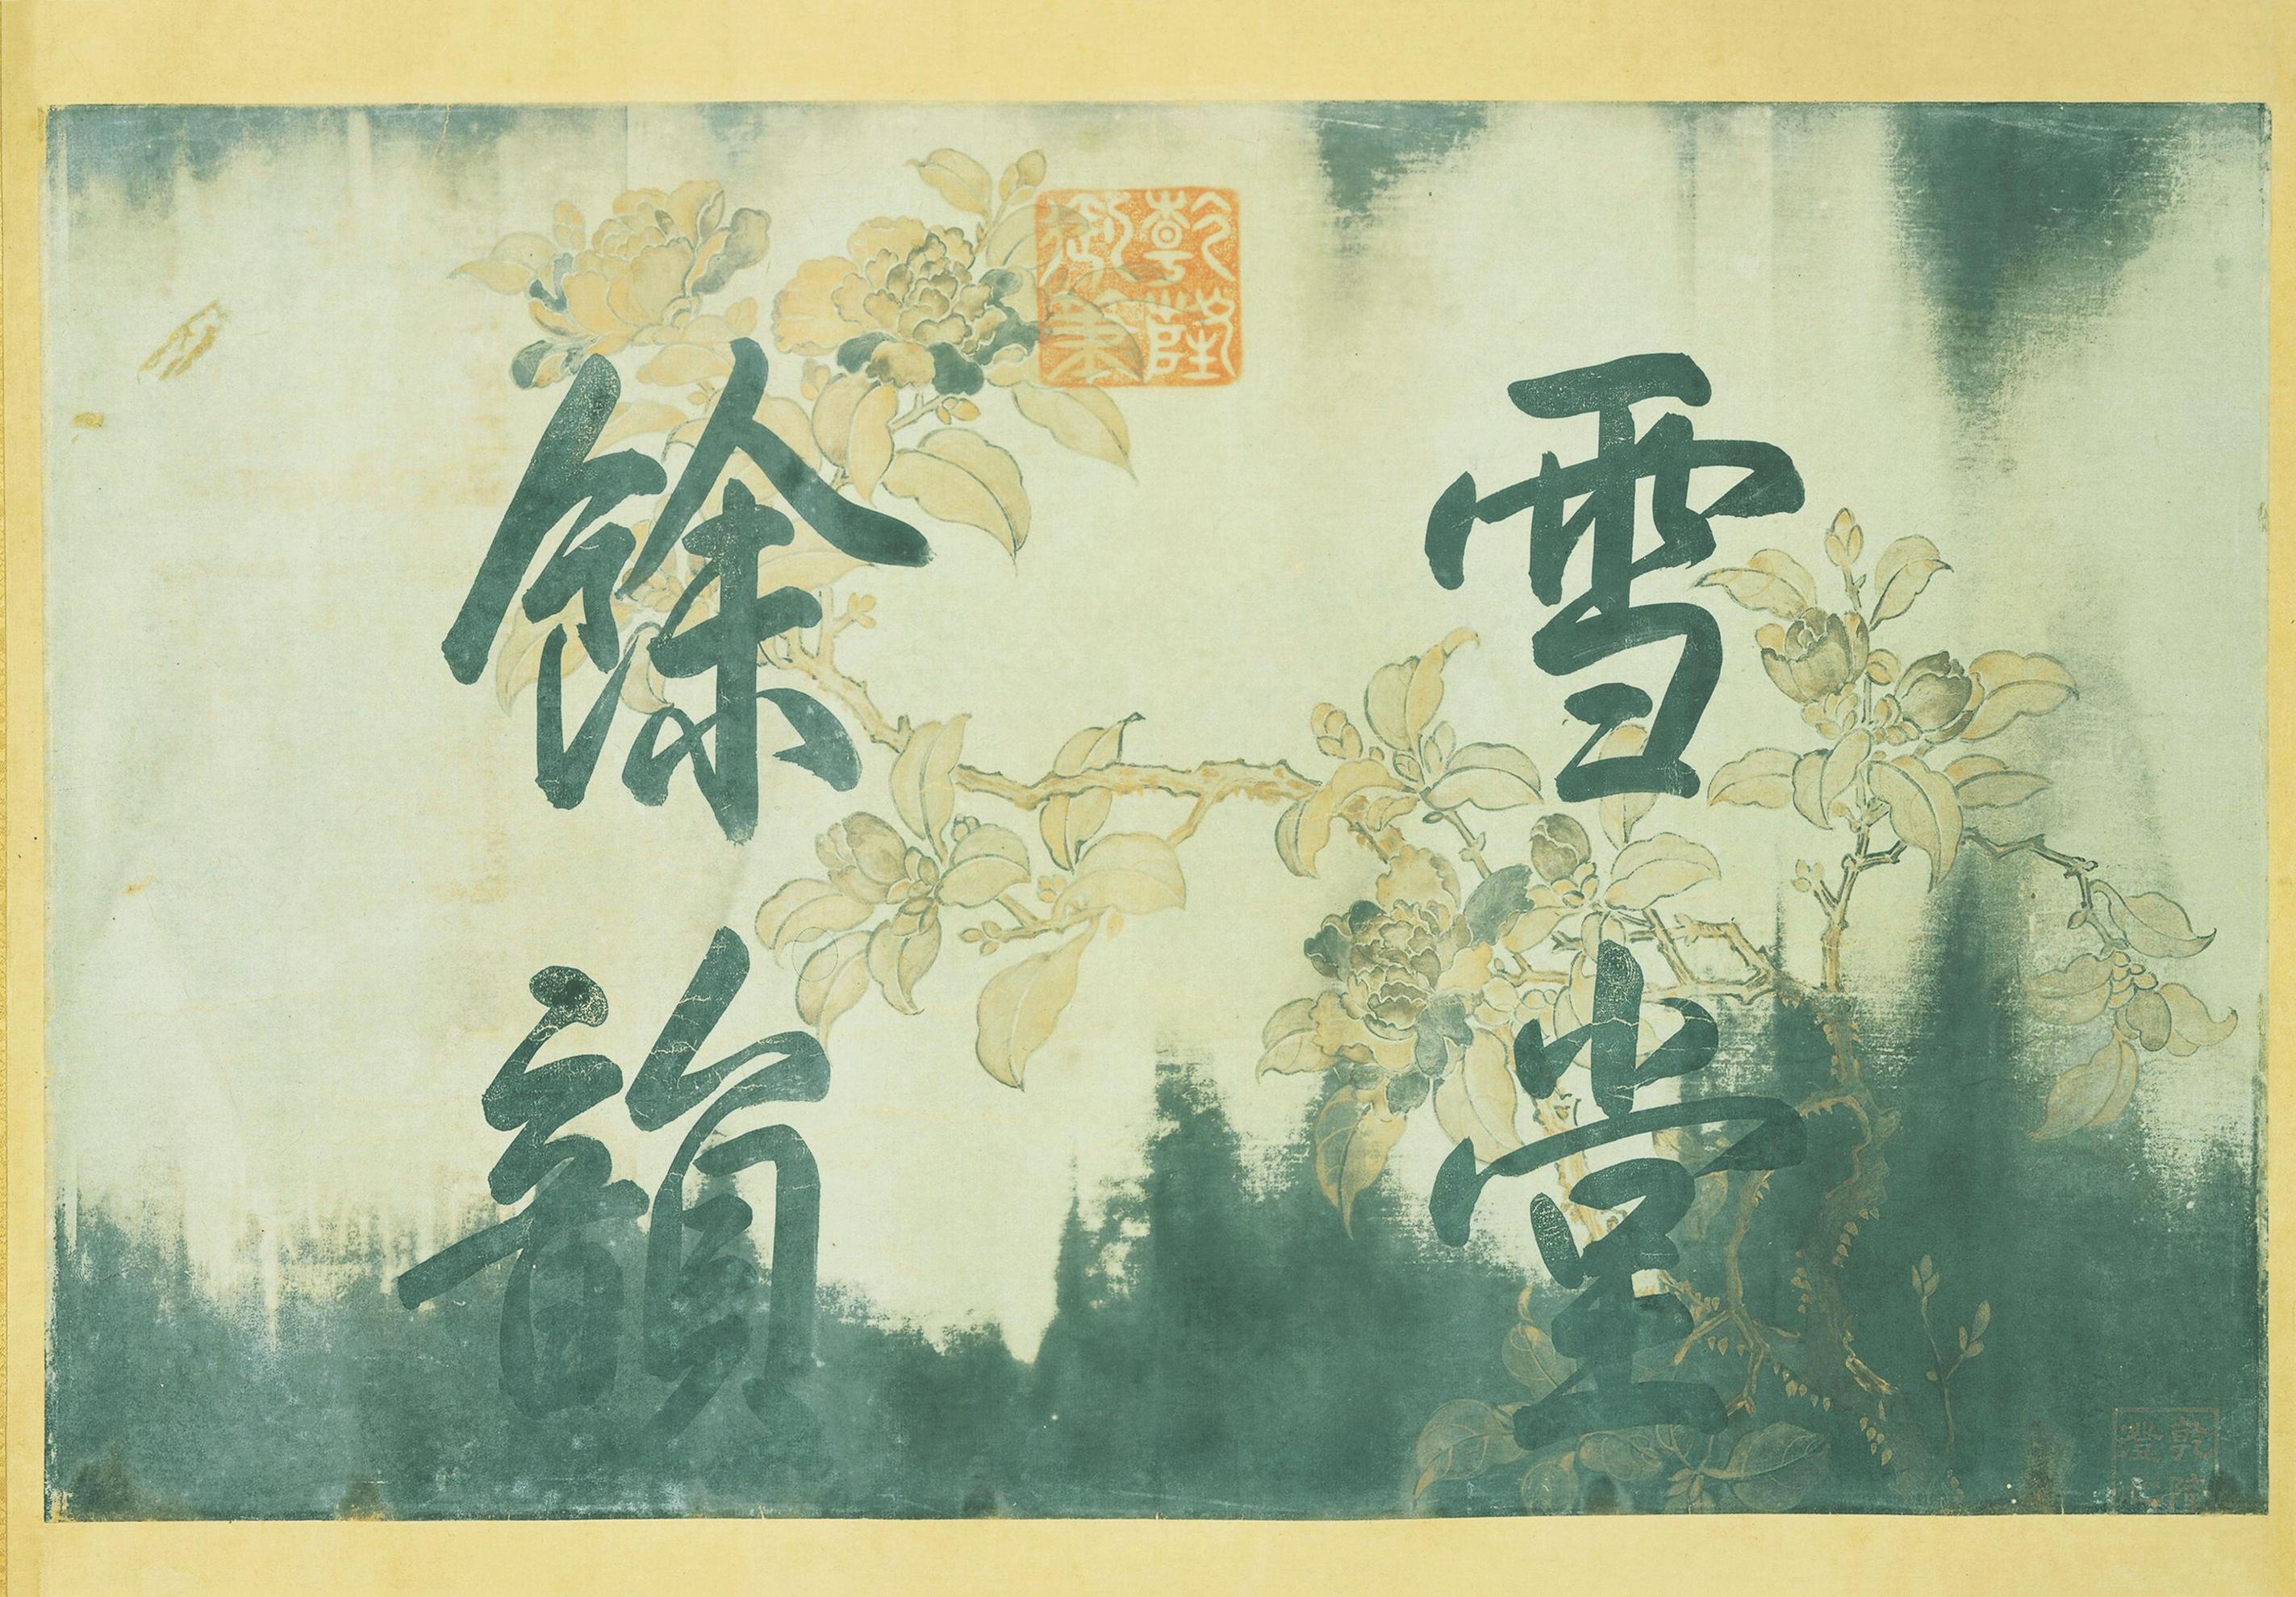 雪堂
餘韻
乾隆御筆